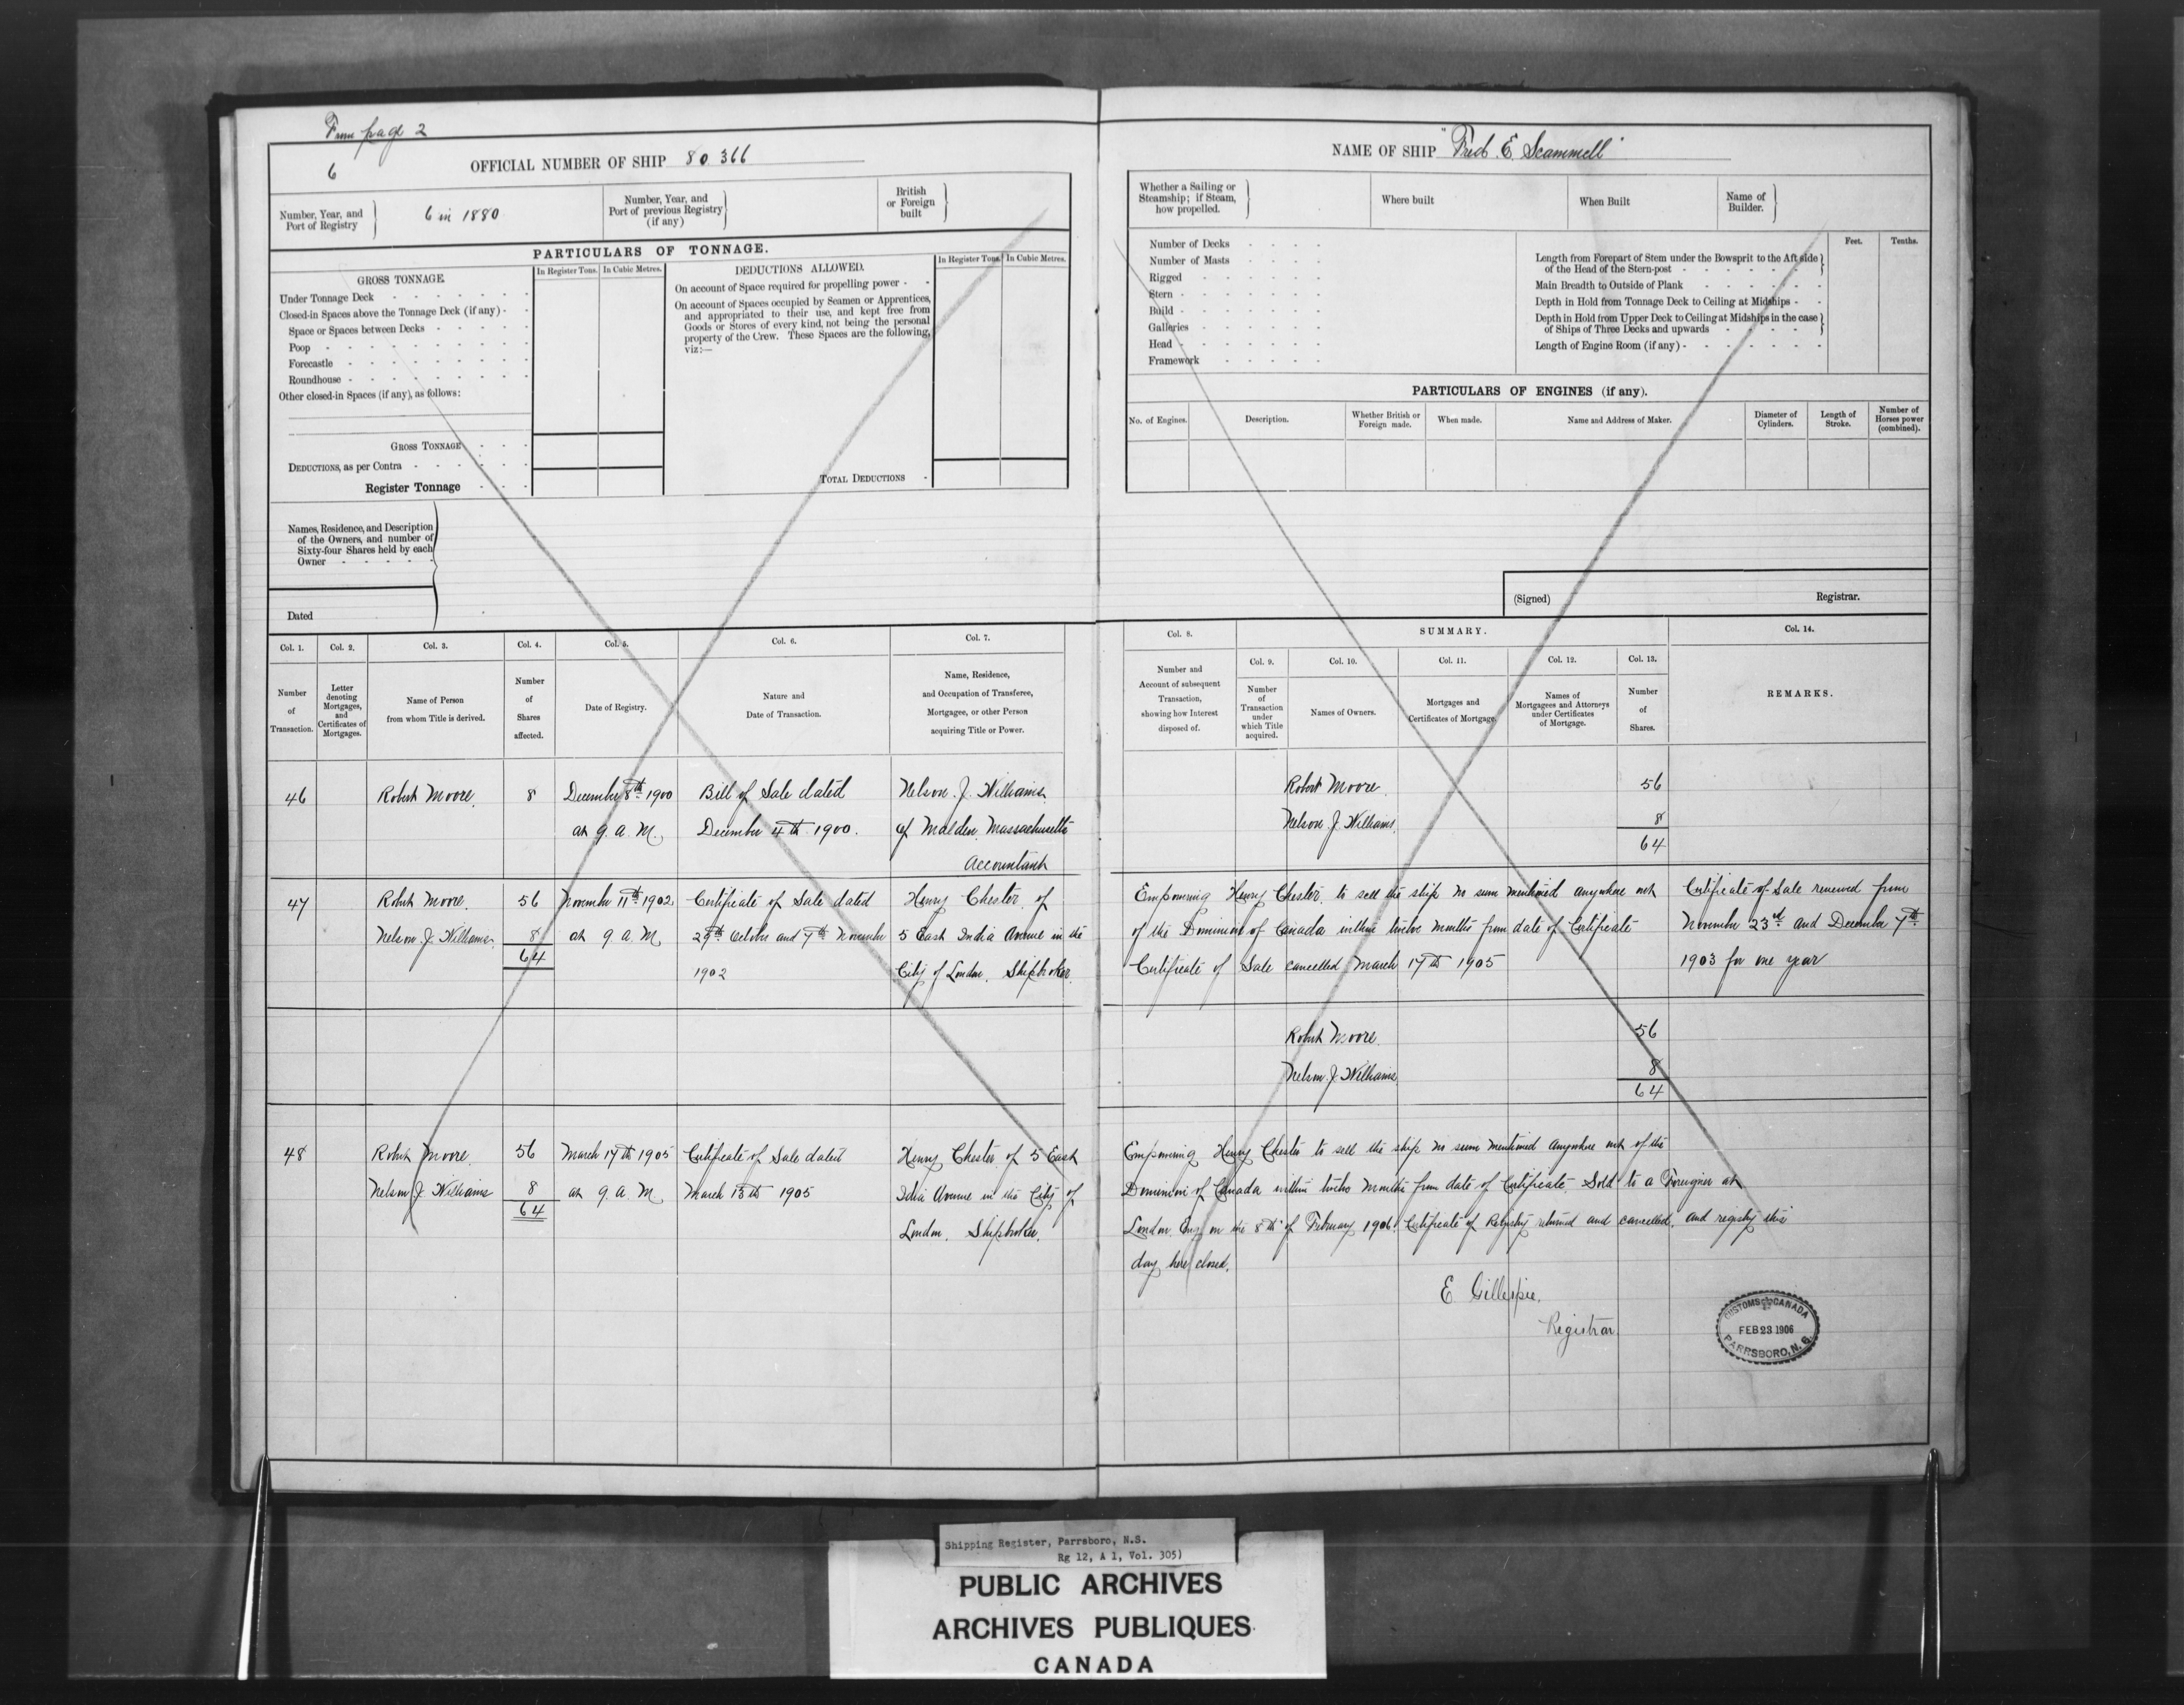 From page 2
6
OFFICIAL NUMBER OF SHIP 80 366
Number, Year, and Port of Registry
6 in 1880
Number, Year, and Port of previous Registry (if any)
British or Foreign built
PARTICULARS OF TONNAGE.
GROSS TONNAGE
In Register Tons. In Cubic Metres.
DEDUCTIONS ALLOWED.
In Register Tons. In Cubic Metres.
Under Tonnage Deck
Closed-in Spaces above the Tonnage Deck (if any)
Space or Spaces between Decks
Poop
Forecastle
Roundhouse
Other closed-in Spaces (if any), as follows:
GROSS TONNAGE
DEDUCTIONS, as per Contra
Register Tonnage
On account of Space required for propelling power
On account of Spaces occupied by Seamen or Apprentices,
and appropriated to their use, and kept free from
Goods or Stores of every kind, not being the personal
property of the Crew. These Spaces are the following,
viz:—
TOTAL DEDUCTIONS
Names, Residence, and Description
of the Owners, and number of
Sixty-four Shares held by each
Owner
Dated
Col. 1.
Number
of
Transaction.
Col. 2.
Letter
denoting
Mortgages,
and
Certificates of
Mortgages.
Col. 3.
Name of Person
from whom Title is derived.
Col. 4.
Number
of
Shares
affected.
Col. 5.
Date of Registry.
Col. 6.
Nature and
Date of Transaction.
Col. 7.
Name, Residence,
and Occupation of Transferee,
Mortgagee, or other Person
acquiring Title or Power.
46 Robert Moore. 8 December 8th 1900 Bill of Sale dated Nelson. J. Williams.
at 9. a. M. December 4th 1900. of Malden. Massachusetts
Accountant
47 Robert Moore. 56 November 11th 1902 Certificate of Sale dated Henry Chester. of
Nelson. J. Williams. 8 at 9 a. M 29th October and 7th November 5 East India Avenue in the
64 1902 City of London. Shipbroker.
48 Robert Moore. 56 March 17th 1905 Certificate of Sale dated Henry Chester of 5 East
Nelson J. Williams 8 at 9 a. M March 13th 1905 Idia Avenue in the City of
64 London. Shipbroker.
NAME OF SHIP "Fred. E. Scammell"
Whether a Sailing or
Steamship; if Steam,
how propelled.
Where built
When Built
Name of
Builder.
Number of Decks
Number of Masts
Rigged
Stern
Build
Galleries
Head
Framework
Feet. Tenths.
Length from Forepart of Stem under the Bowsprit to the Aft side
of the Head of the Stern-post
Main Breadth to Outside of Plank
Depth in Hold from Tonnage Deck to Ceiling at Midships
Depth in Hold from Upper Deck to Ceiling at Midships in the case
of Ships of Three Decks and upwards
Length of Engine Room (if any)
PARTICULARS OF ENGINES (if any).
No. of Engines.
Description.
Whether British or
Foreign made.
When made.
Name and Address of Maker.
Diameter of
Cylinders.
Length of
Stroke.
Number of
Horses power
(combined).
(Signed) Registrar.
Col. 8.
Number and
Account of subsequent
Transaction,
showing how Interest
disposed of.
SUMMARY.
Col. 9.
Number
of
Transaction
under
which Title
acquired.
Col. 10.
Names of Owners.
Col. 11.
Mortgages and
Certificates of Mortgage.
Col. 12.
Names of
Mortgagees and Attorneys
under Certificates
of Mortgage.
Col. 13.
Number
of
Shares.
Col. 14.
REMARKS.
Robert Moore. 56
Nelson J. Williams. 8
64
Empowering Henry Chester. to sell the ship no sum mentioned anywhere out
of the Dominion of Canada within twelve months from date of Certificate
Certificate of Sale cancelled March 17th 1905
Certificate of Sale renewed from
November 23rd and December 7th
1903 for one year
Robert Moore. 56
Nelson. J. Williams. 8
64
Empowering Henry Chester to sell the ship no sum mentioned anywhere out of the
Dominion of Canada within twelve months from date of Certificate. Sold to a Foreigner at
London Eng on the 8th of February 1906. Certificate of Registry returned and cancelled. and registry this
day here closed.
E Gillespie.
Registrar
CUSTOMS CANADA
FEB 23 1906
PARRSBORO, N. S.
Shipping Register, Parrsboro, N.S.
Rg 12, A 1, Vol. 305)
PUBLIC ARCHIVES
ARCHIVES PUBLIQUES
CANADA